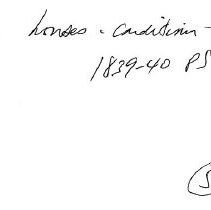 houses - condition -
1839-40 PS
S